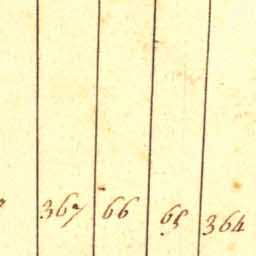 367 66 65 364